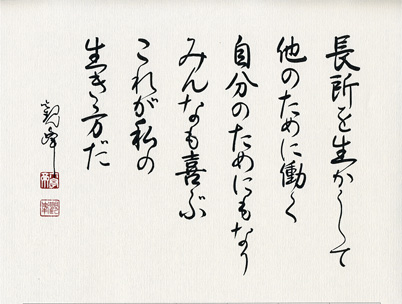 長所を生かして
他のために働く
自分のためにもなり
みんなも喜ぶ
これが私の
生き方だ